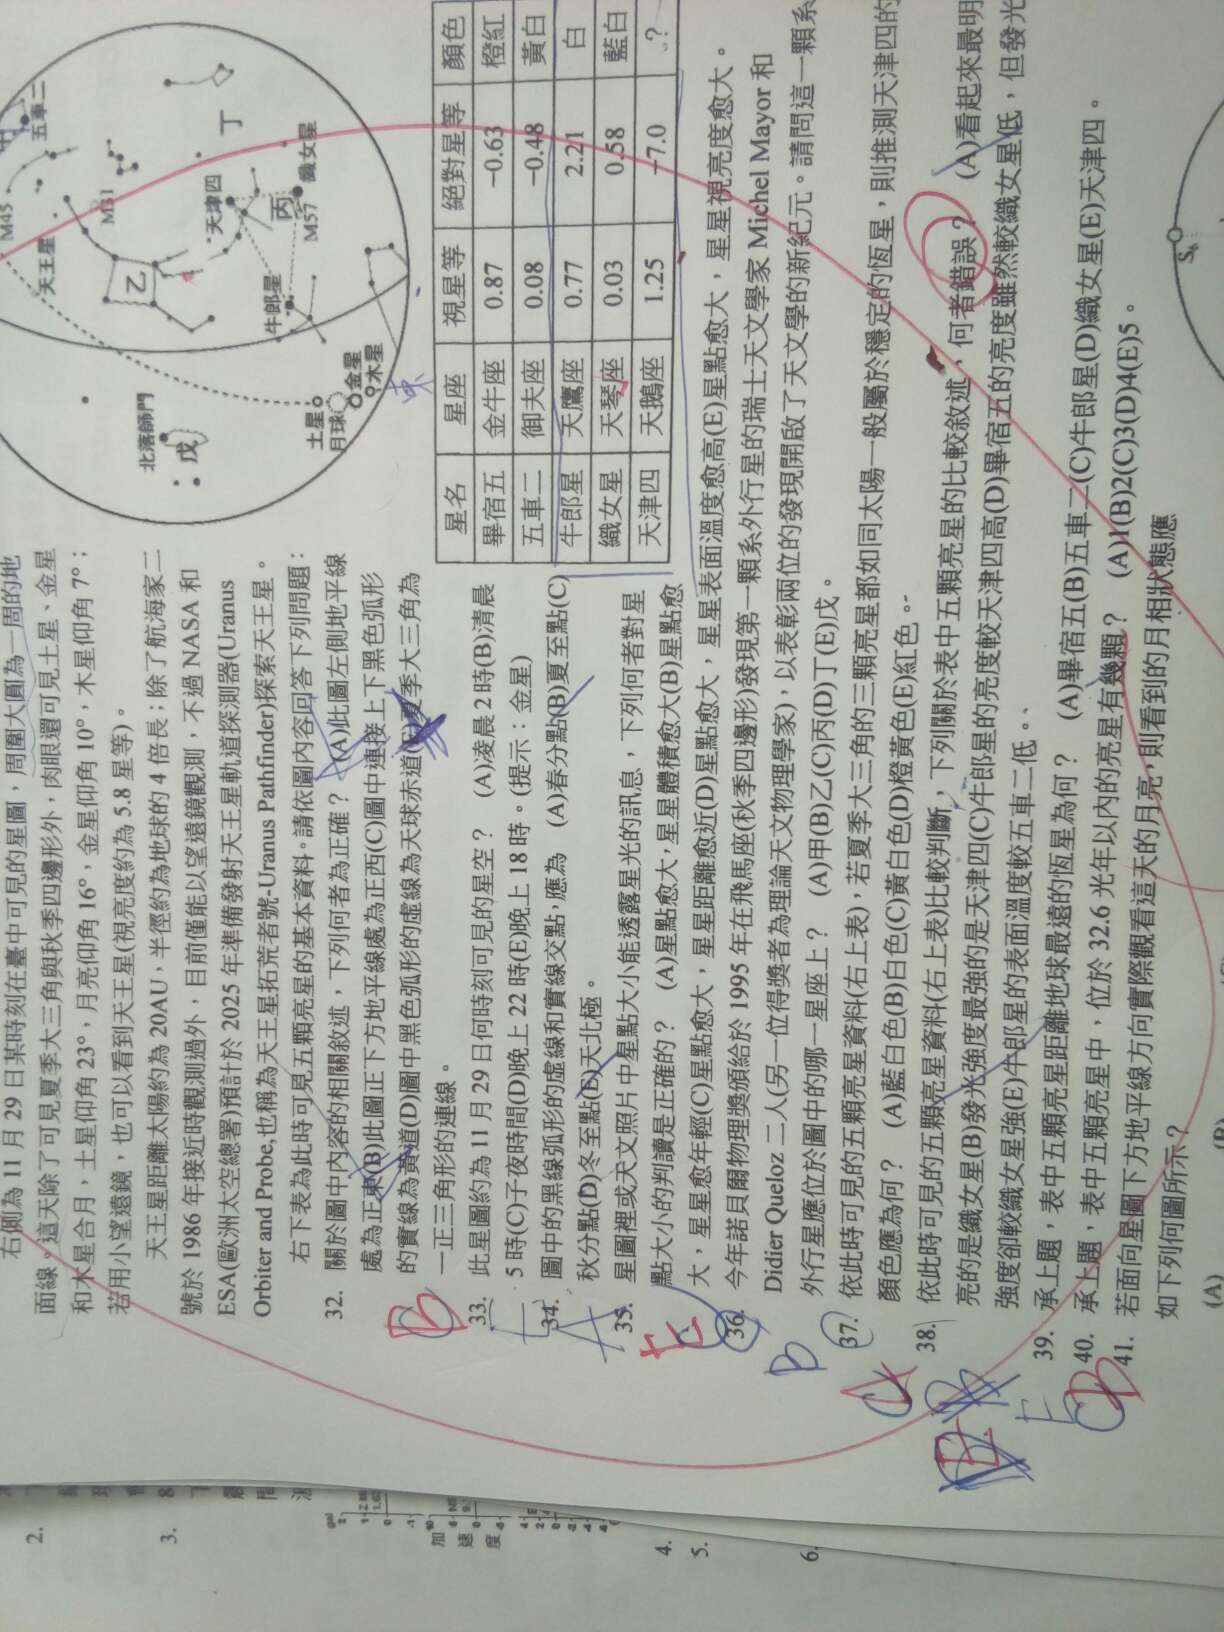 右側為 11 月 29 日某時刻在臺中可見的星圖，周圍大圓為一周的地
面線。這天除了可見夏季大三角與秋季四邊形外，肉眼還可見土星、金星
和木星合月，土星仰角 23°，月亮仰角 16°，金星仰角 10°，木星仰角 7°；
若用小望遠鏡，也可以看到天王星(視亮度約為 5.8 星等)。
天王星距離太陽約為 20AU，半徑約為地球的 4 倍長；除了航海家二
號於 1986 年接近時觀測過外，目前僅能以望遠鏡觀測，不過 NASA 和
ESA(歐洲太空總署)預計於 2025 年準備發射天王星軌道探測器(Uranus
Orbiter and Probe,也稱為天王星拓荒者號-Uranus Pathfinder)探索天王星。
右下表為此時可見五顆亮星的基本資料。請依圖內容回答下列問題：
32. 關於圖中內容的相關敘述，下列何者為正確？ (A)此圖左側地平線
處為正東(B)此圖正下方地平線處為正西(C)圖中連接上下黑色弧形
的實線為黃道(D)圖中黑色弧形的虛線為天球赤道(E)夏季大三角為
一正三角形的連線。
33. 此星圖約為 11 月 29 日何時刻可見的星空？ (A)凌晨 2 時(B)清晨
5 時(C)子夜時間(D)晚上 22 時(E)晚上 18 時。(提示：金星)
34. 圖中的黑線弧形的虛線和實線交點,應為 (A)春分點(B)夏至點(C)
秋分點(D)冬至點(E)天北極。
35. 星圖裡或天文照片中星點大小能透露星光的訊息，下列何者對星
點大小的判讀是正確的？ (A)星點愈大，星星體積愈大(B)星點愈
大，星星愈年輕(C)星點愈大，星星距離愈近(D)星點愈大，星星表面溫度愈高(E)星點愈大，星星視亮度愈大。
36. 今年諾貝爾物理獎頒給於 1995 年在飛馬座(秋季四邊形)發現第一顆系外行星的瑞士天文學家 Michel Mayor 和
Didier Queloz 二人(另一位得獎者為理論天文物理學家)，以表彰兩位的發現開啟了天文學的新紀元。請問這一顆系
外行星應位於圖中的哪一星座上？ (A)甲(B)乙(C)丙(D)丁(E)戊。
37. 依此時可見的五顆亮星資料(右上表)，若夏季大三角的三顆亮星都如同太陽一般屬於穩定的恆星，則推測天津四的
顏色應為何？ (A)藍白色(B)白色(C)黃白色(D)橙黃色(E)紅色。
38. 依此時可見的五顆亮星資料(右上表)比較判斷，下列關於表中五顆亮星的比較敘述，何者錯誤？ (A)看起來最明
亮的是織女星(B)發光強度最強的是天津四(C)牛郎星的亮度較天津四高(D)畢宿五的亮度雖然較織女星低，但發光
強度卻較織女星強(E)牛郎星的表面溫度較五車二低。
39. 承上題，表中五顆亮星距離地球最遠的恆星為何？ (A)畢宿五(B)五車二(C)牛郎星(D)織女星(E)天津四。
40. 承上題，表中五顆亮星中，位於 32.6 光年以內的亮星有幾顆？ (A)1(B)2(C)3(D)4(E)5。
41. 若面向星圖下方地平線方向實際觀看這天的月亮，則看到的月相狀態應
如下列何圖所示？
(A)
(B)
M45
五車二
天王星
M31
乙
丁
天津四
丙
織女星
M57
牛郎星
北落師門
戊
土星
月球
金星
木星
東
星名 星座 視星等 絕對星等 顏色
畢宿五 金牛座 0.87 −0.63 橙紅
五車二 御夫座 0.08 −0.48 黃白
牛郎星 天鷹座 0.77 2.21 白
織女星 天琴座 0.03 0.58 藍白
天津四 天鵝座 1.25 −7.0 ?
B
E
A
E
B
E
B
2.
3.
4.
5.
6.
加速度
gal